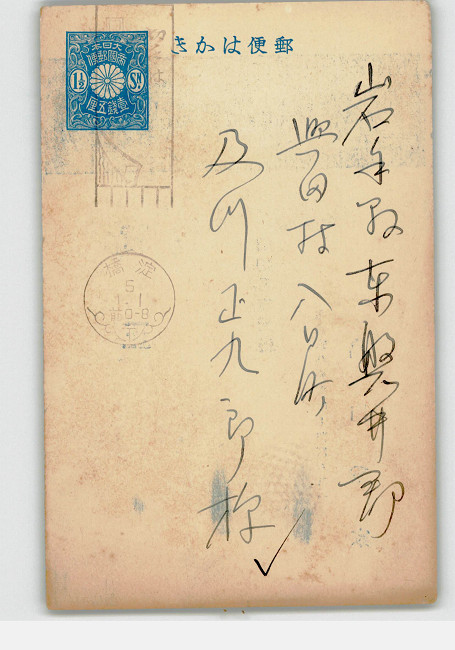 郵便はかき
大日本
帝國郵便
1½ SN
壹錢五厘
岩手縣東磐井郡
興田村八日町
及川正九郎様
淀橋
5
1.1
前0-8